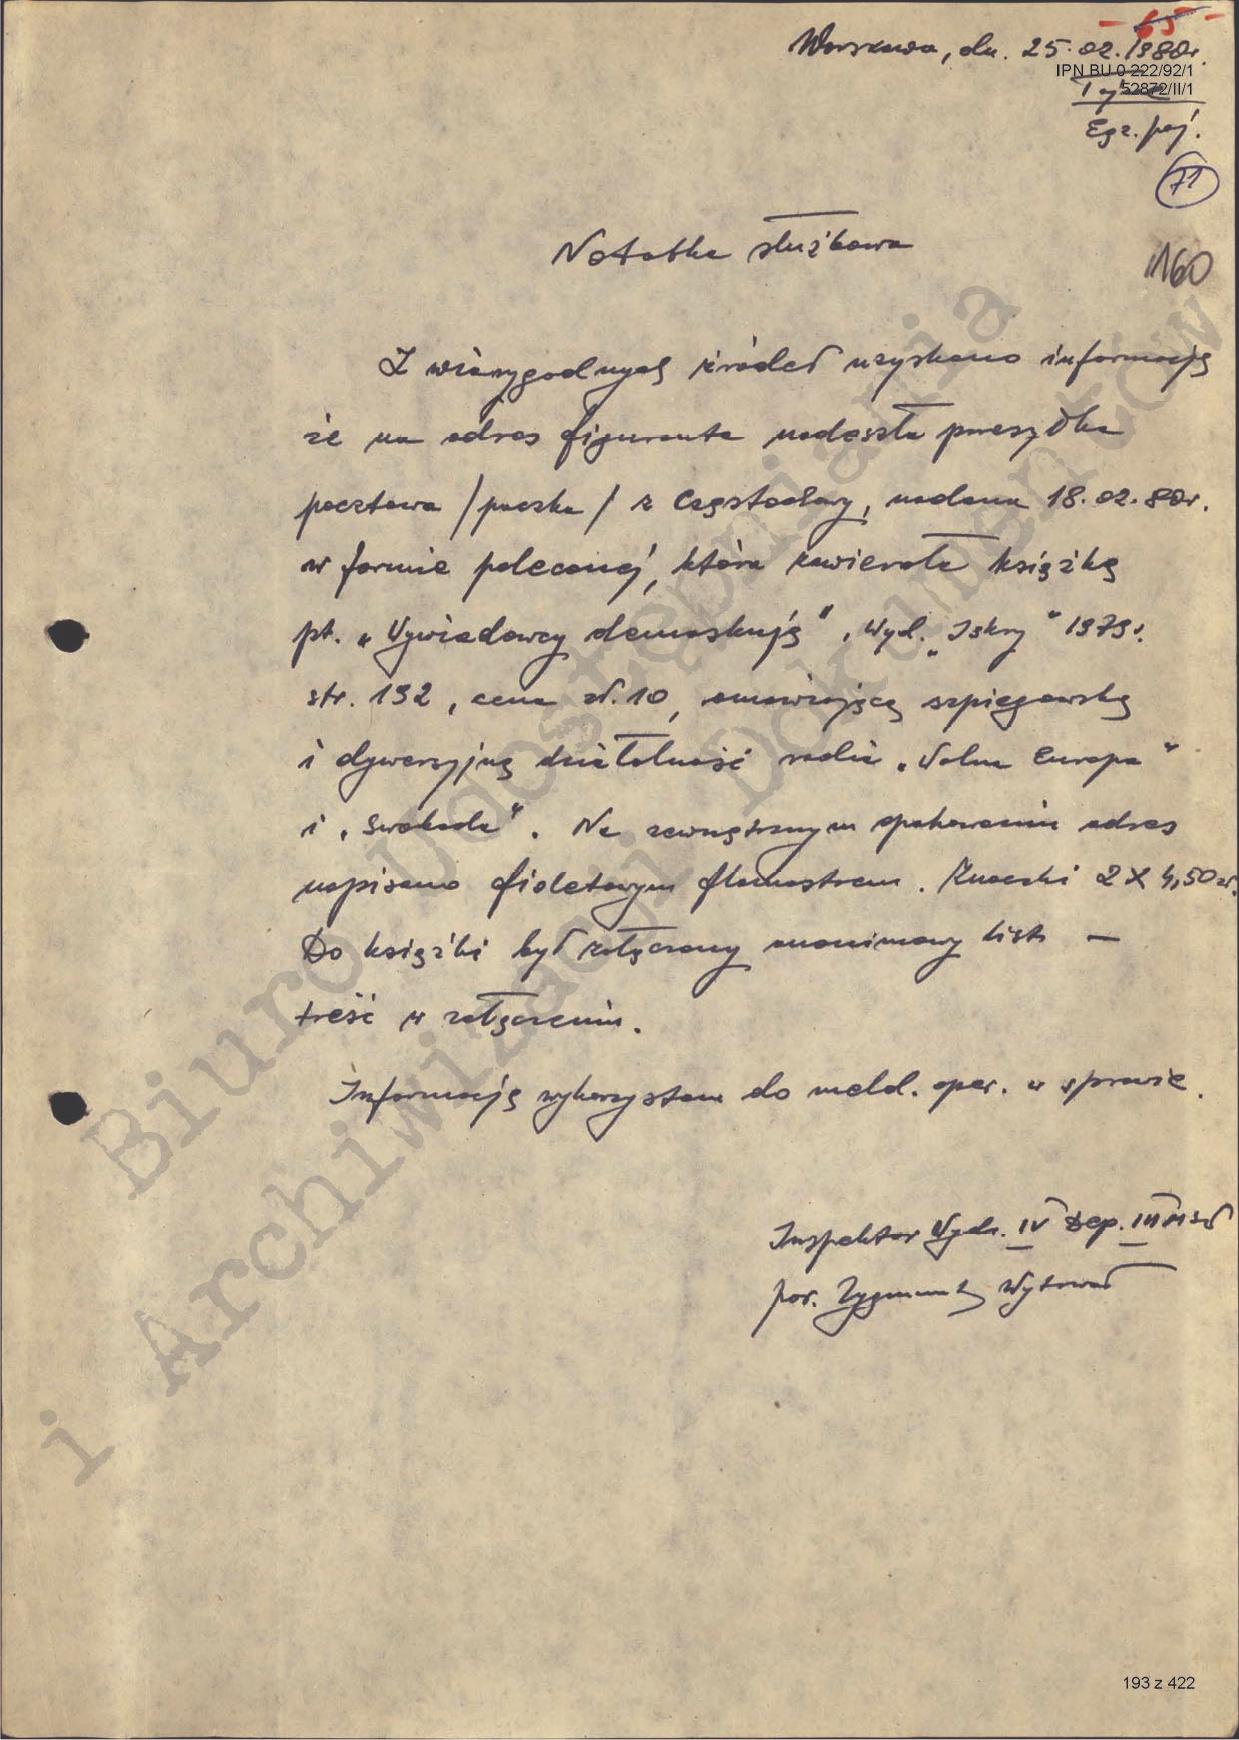 - 65 -
Warszawa, dn. 25.02.1980r.
IPN BU 0 222/92/1
52872/II/1
Tajne
Egz. poj.
71
160
Notatka służbowa
Z wiarygodnych źródeł uzyskano informację
że na adres figuranta nadeszła przesyłka
pocztowa /paczka/ z Częstochowy, nadana 18.02.80r.
w formie poleconej, która zawierała książkę
pt. „Wywiadowcy demaskują", Wyd. „Iskry" 1979r.
str. 192, cena zł. 10, omawiającą szpiegowską
i dywersyjną działalność radia „Wolna Europa"
i „Swoboda". Na zewnętrznym opakowaniu adres
napisano fioletowym flamastrem. Znaczki 2 X 4,50 zł.
Do książki był załączony anonimowy list —
treść w załączeniu.
Informację wykorzystano do meld. oper. w sprawie.
Inspektor Wydz. IV Dep. III MSW
por. Zygmunt Wytrwał
Biuro Udostępniania
i Archiwizacji Dokumentów
193 z 422